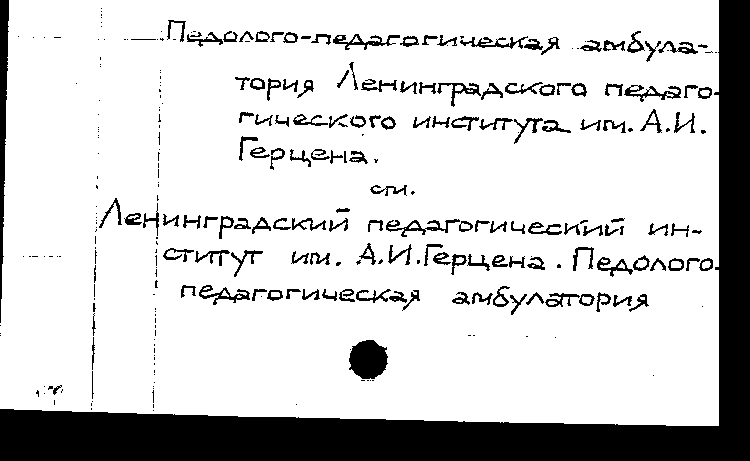 Педолого-педагогическая амбула-
тория Ленинградского педаго-
гического института им. А.И.
Герцена.
см.
Ленинградский педагогический ин-
ститут им. А.И.Герцена. Педолого-
педагогическая амбулатория